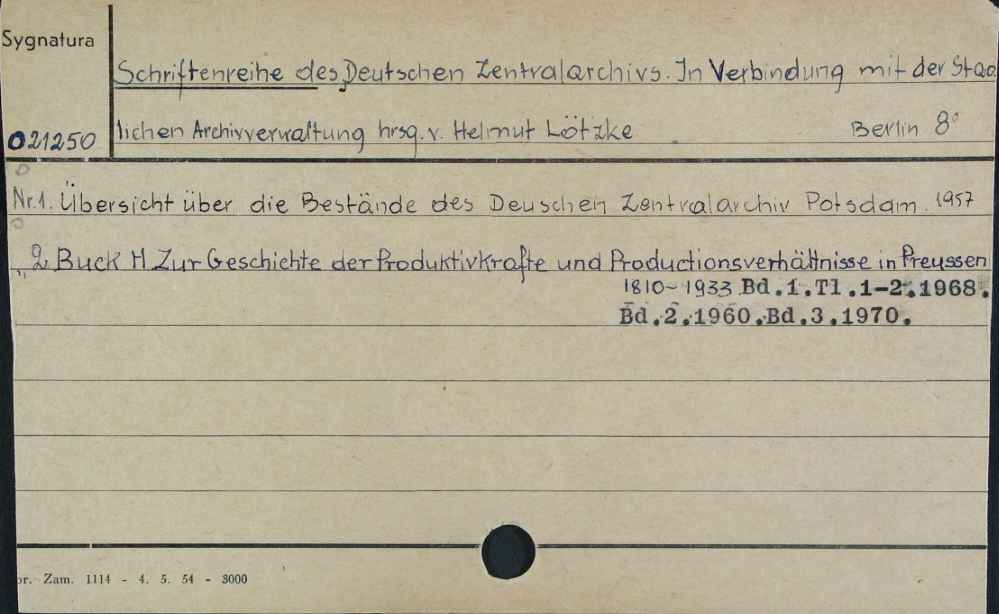 Sygnatura
Schriftenreihe des Deutschen Zentralarchivs. In Verbindung mit der Staa
021250 lichen Archivverwaltung hrsg. v. Helmut Lötzke Berlin 8°
Nr.1. Übersicht über die Bestände des Deuschen Zentralarchiv Potsdam. 1957
" 2 Buck H Zur Geschichte der Produktivkrafte und Productionsverhältnisse in Preussen
1810-1933 Bd.1.Tl.1-2.1968.
Bd.2.1960.Bd.3.1970.
or. Zam. 1114 - 4. 5. 54 - 3000